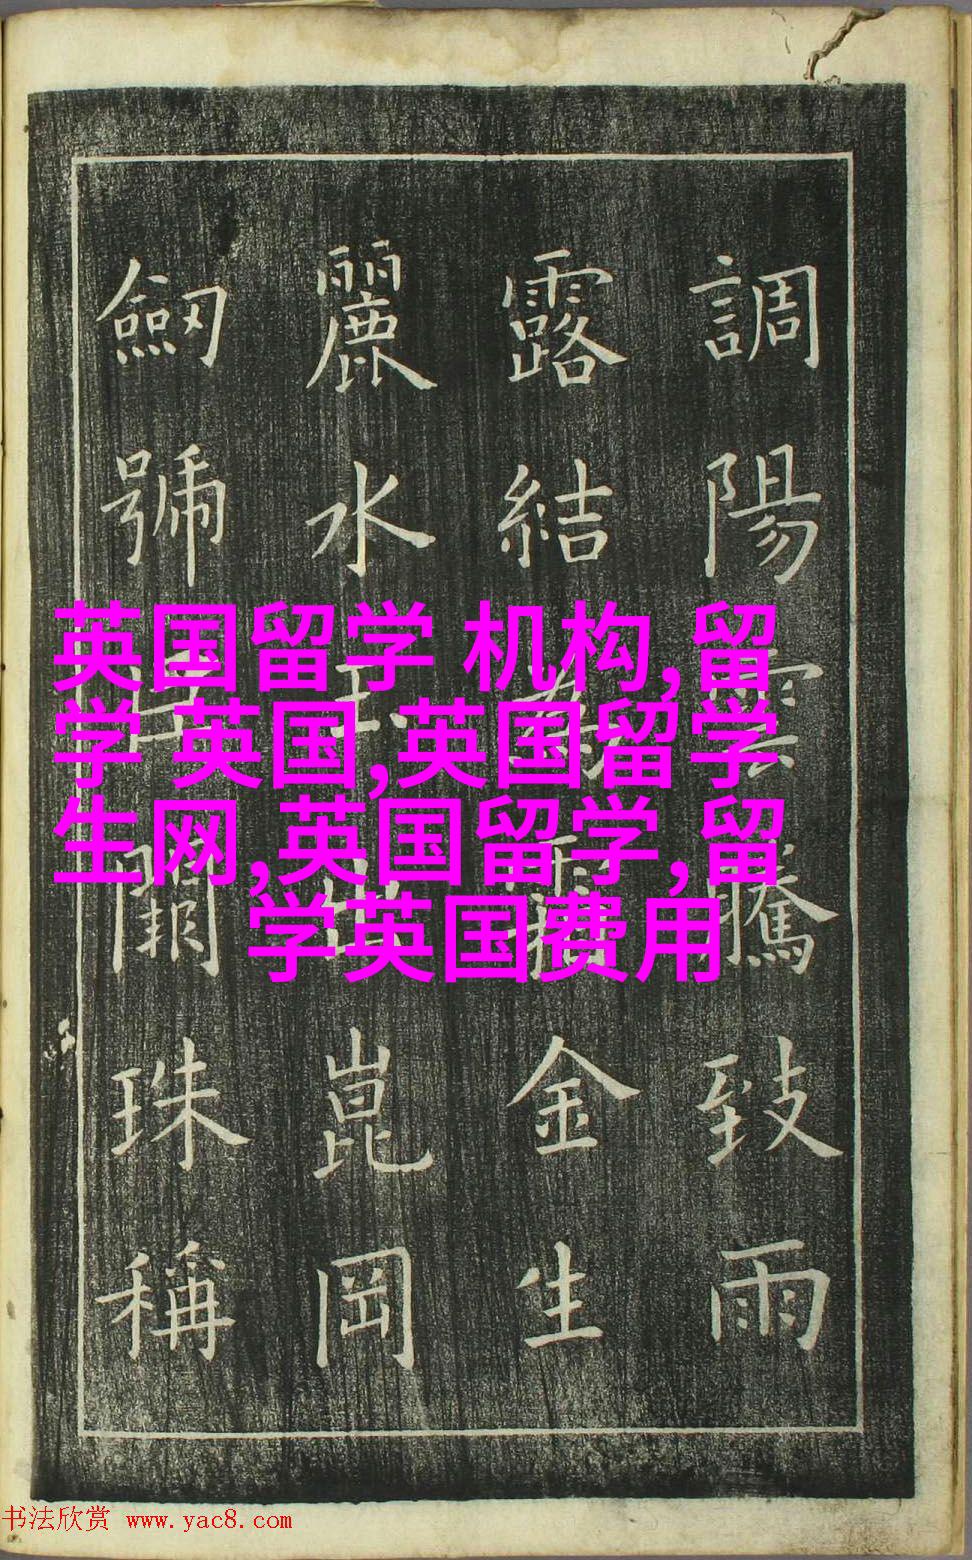 調陽雲騰致雨
露結為霜金生
麗水玉出崑岡
劒號巨闕珠稱
英国留学 机构,留
学 英国,英国留学
生网,英国留学,留
学英国费用
书法欣赏 www.yac8.com